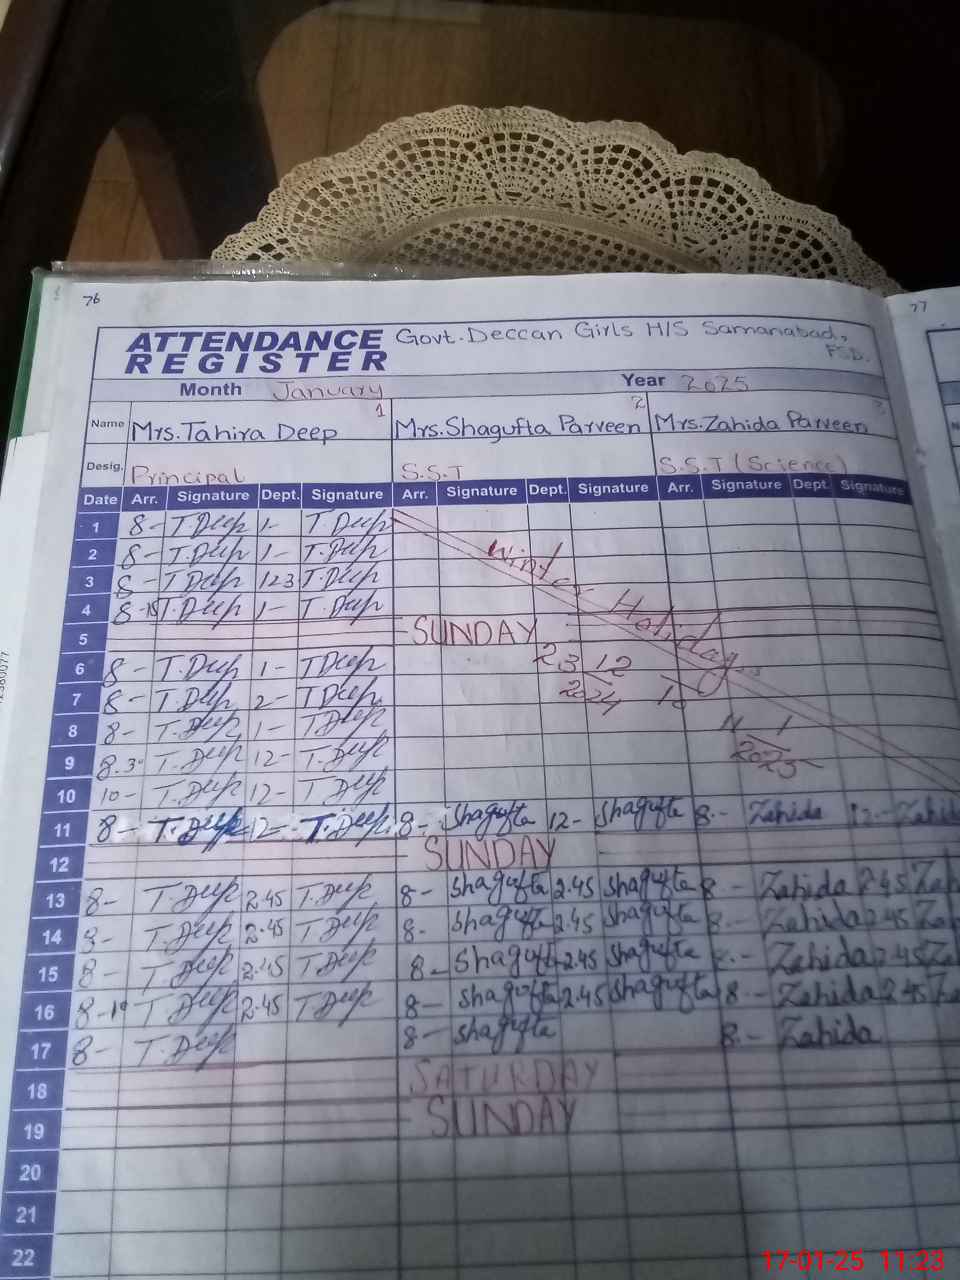 76
77
ATTENDANCE REGISTER Govt. Deccan Girls H/S Samanabad, FSD.
Month January Year 2025
1 2 3
Name Mrs.Tahira Deep Mrs.Shagufta Parveen Mrs.Zahida Parveen
Desig. Principal S.S.T S.S.T (Science)
Date Arr. Signature Dept. Signature Arr. Signature Dept. Signature Arr. Signature Dept. Signature
1 8- T.Deep 1- T.Deep
2 8- T.Deep 1- T.Deep Winter
3 8- T.Deep T.Deep
4 8-15 T.Deep 1- T.Deep Holidays
5 SUNDAY
6 8- T.Deep 1- T.Deep 23 12
7 8- T.Deep 2- T.Deep 2024 To
8 8- T.Deep 1- T.Deep 11 1
9 8.30 T.Deep 12- T.Deep 2025
10 10- T.Deep 12- T.Deep
11 8- T.Deep 12- T.Deep 8- Shagufta 12- Shagufta 8- Zahida 12- Zahid
12 SUNDAY
13 8- T.Deep 2.45 T.Deep 8- Shagufta 2.45 Shagufta 8- Zahida 2.45 Zah
14 8- T.Deep 2.45 T.Deep 8- Shagufta 2.45 Shagufta 8- Zahida 2.45 Za
15 8- T.Deep 2.45 T.Deep 8- Shagufta 2.45 Shagufta 8- Zahida 2.45 Za
16 8-10 T.Deep 2.45 T.Deep 8- Shagufta 2.45 Shagufta 8- Zahida 2.45 Za
17 8- T.Deep 8- Shagufta 8- Zahida
18 SATURDAY
19 SUNDAY
20
21
22
17-01-25 11:23